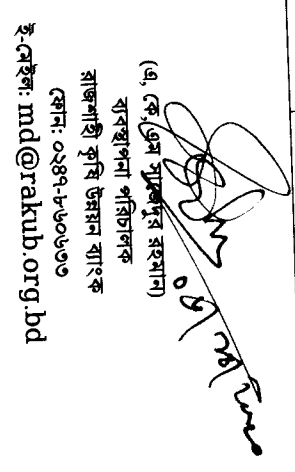 (এ, কে, এম রহমান)
ব্যবস্থাপনা পরিচালক
রাজশাহী কৃষি উন্নয়ন ব্যাংক
ফোন: ০২৪৭-৮৬০৬৩৩
ই-মেইল: md@rakub.org.bd